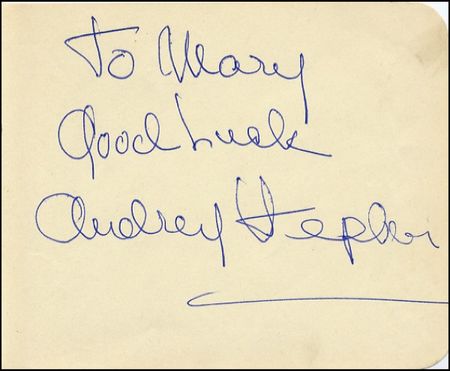 To Mary
Good Luck
Audrey Hepburn